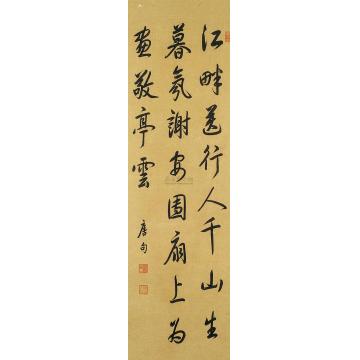 江畔送行人千山生
暮氛謝安團扇上為
畫敬亭雲
唐句